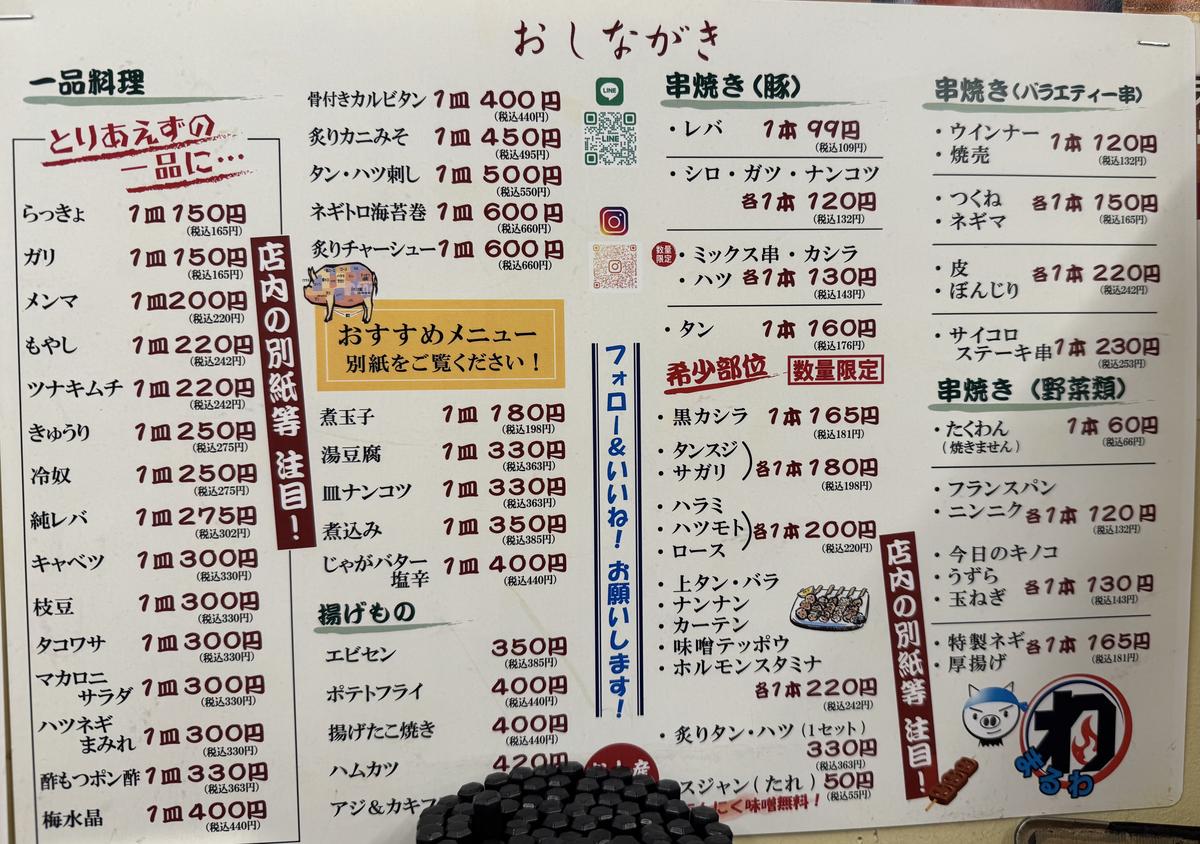 おしながき
一品料理
とりあえずの
一品に…
らっきょ 1皿 150円
(税込165円)
ガリ 1皿 150円
(税込165円)
メンマ 1皿 200円
(税込220円)
もやし 1皿 220円
(税込242円)
ツナキムチ 1皿 220円
(税込242円)
きゅうり 1皿 250円
(税込275円)
冷奴 1皿 250円
(税込275円)
純レバ 1皿 275円
(税込302円)
キャベツ 1皿 300円
(税込330円)
枝豆 1皿 300円
(税込330円)
タコワサ 1皿 300円
(税込330円)
マカロニ
サラダ 1皿 300円
(税込330円)
ハツネギ
まみれ 1皿 300円
(税込330円)
酢もつポン酢 1皿 330円
(税込363円)
梅水晶 1皿 400円
(税込440円)
店内の別紙等 注目！
骨付きカルビタン 1皿 400円
(税込440円)
炙りカニみそ 1皿 450円
(税込495円)
タン・ハツ刺し 1皿 500円
(税込550円)
ネギトロ海苔巻 1皿 600円
(税込660円)
炙りチャーシュー 1皿 600円
(税込660円)
おすすめメニュー
別紙をご覧ください！
煮玉子 1皿 180円
(税込198円)
湯豆腐 1皿 330円
(税込363円)
皿ナンコツ 1皿 330円
(税込363円)
煮込み 1皿 350円
(税込385円)
じゃがバター
塩辛 1皿 400円
(税込440円)
揚げもの
エビセン 350円
(税込385円)
ポテトフライ 400円
(税込440円)
揚げたこ焼き 400円
(税込440円)
ハムカツ 420円
アジ&カキフ
LINE
LINE
フォロー&いいね！お願いします！
串焼き（豚）
・レバ 1本 99円
(税込109円)
・シロ・ガツ・ナンコツ
各1本 120円
(税込132円)
数量
限定
・ミックス串・カシラ
・ハツ 各1本 130円
(税込143円)
・タン 1本 160円
(税込176円)
希少部位 数量限定
・黒カシラ 1本 165円
(税込181円)
・タンスジ
・サガリ
各1本 180円
(税込198円)
・ハラミ
・ハツモト
・ロース
各1本 200円
(税込220円)
・上タン・バラ
・ナンナン
・カーテン
・味噌テッポウ
・ホルモンスタミナ
各1本 220円
(税込242円)
・炙りタン・ハツ（1セット）
330円
(税込363円)
スジャン（たれ）50円
(税込55円)
んにく味噌無料！
店内の別紙等 注目！
串焼き（バラエティー串）
・ウインナー
・焼売
1本 120円
(税込132円)
・つくね
・ネギマ
各1本 150円
(税込165円)
・皮
・ぼんじり
各1本 220円
(税込242円)
・サイコロ
ステーキ串 1本 230円
(税込253円)
串焼き（野菜類）
・たくわん 1本 60円
（焼きません） (税込66円)
・フランスパン
・ニンニク 各1本 120円
(税込132円)
・今日のキノコ
・うずら
・玉ねぎ
各1本 130円
(税込143円)
・特製ネギ
・厚揚げ
各1本 165円
(税込181円)
わ
まるわ